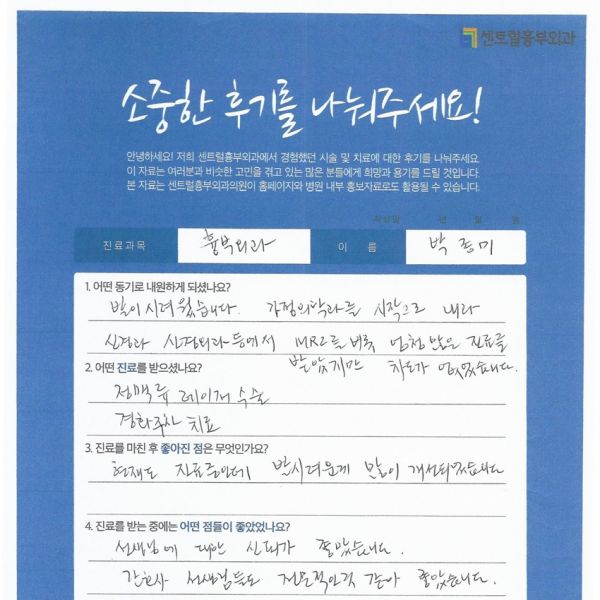 센트럴흉부외과
소중한 후기를 나눠주세요!
안녕하세요! 저희 센트럴흉부외과에서 경험했던 시술 및 치료에 대한 후기를 나눠주세요.
이 자료는 여러분과 비슷한 고민을 겪고 있는 많은 분들에게 희망과 용기를 드릴 것입니다.
본 자료는 센트럴흉부외과의원이 홈페이지와 병원 내부 홍보자료로도 활용될 수 있습니다.
작성일 년 월 일
진료과목 흉부외과 이 름 박종미
1. 어떤 동기로 내원하게 되셨나요?
발이 시려 웠습니다. 가정의학과를 시작으로 내과
신경과 신경외과 등에서 MRI를 비롯 엄청 많은 진료를
받았지만 차도가 없었습니다.
2. 어떤 진료를 받으셨나요?
정맥류 레이저 수술
경화주사 치료
3. 진료를 마친 후 좋아진 점은 무엇인가요?
현재도 진료중인데 발시려운게 많이 개선되었습니다
4. 진료를 받는 중에는 어떤 점들이 좋았었나요?
선생님에 대한 신뢰가 좋았습니다.
간호사 선생님들도 전문적인것 같아 좋았습니다.